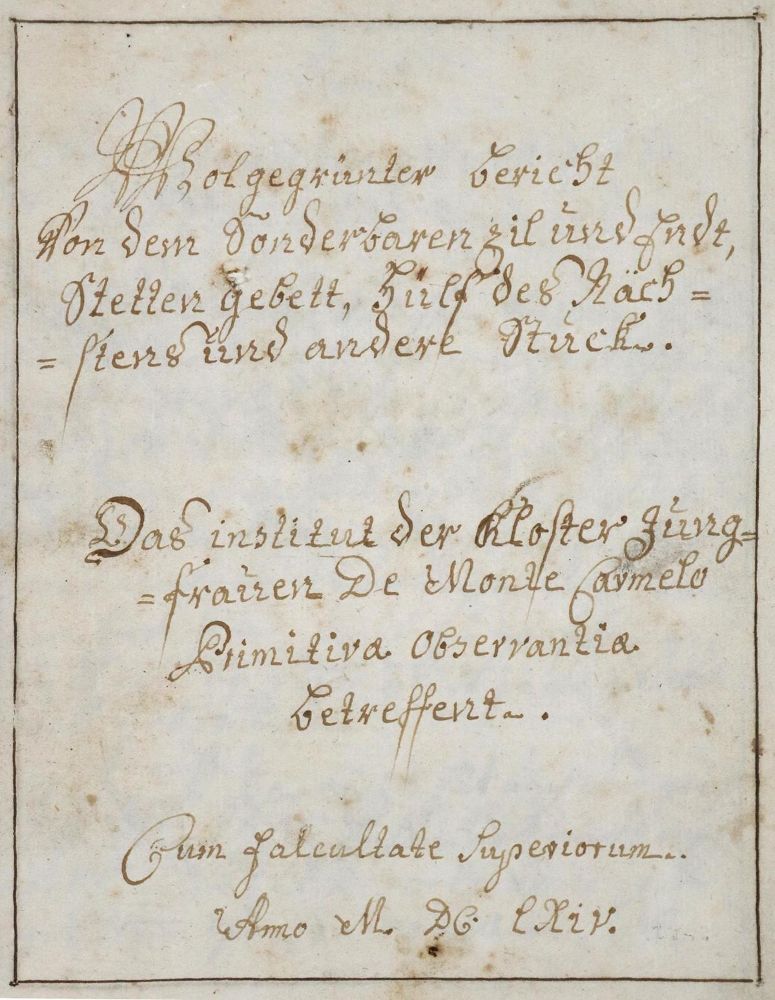 Wolgegrünter bericht
Von dem Sonderbaren zil und Endt,
Stetten gebett, Hülf des Näch=
=stens und andere Stuck.
Das institut der Kloster Jung=
=frauen De Monte Carmelo
Primitivæ Observantiæ
betreffent.
Cum falcultate Superiorum.
Anno M. DC. LXiv.